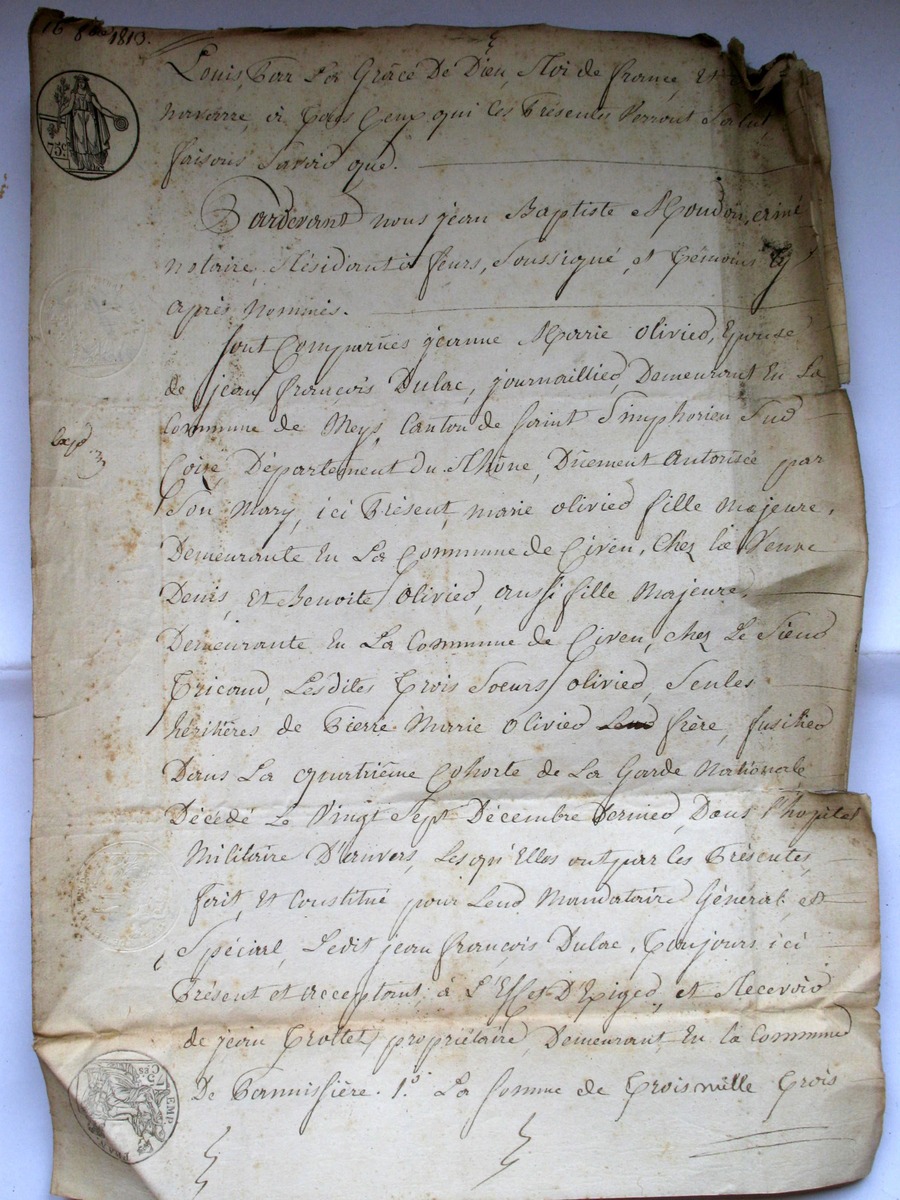 16 8bre 1813.
Louis, Par La Grâce De Dieu, Roi de france, Et
navarre, à Tous Ceux qui Ces Présentes Verront Salut,
faisons Savoir que.
75c
Pardevant nous jean Baptiste
notaire Résidant à feurs, Soussigné, et Témoins Cy
après nommés.
Sont Comparues jeanne Marie olivier, Epouse
de jean françois Dulac, journaillier, Demeurant En La
Commune de Meys, Canton de Saint Simphorien Sur
Coise, Département du Rhône, Dûement Autorisée par
Son Mary, ici Présent, marie olivier fille Majeure,
Demeurante En La Commune de Civen, Chez la Veuve
Denis, Et Benoite olivier, aussi fille Majeure,
Demeurante En La Commune de Civen, chez Le Sieur
Tricaud, Lesdites Trois Soeurs olivier, Seules
héritières de Pierre Marie olivier Leur frère, fusilier
Dans La quatrième Cohorte de La Garde Nationale
Décédé Le Vingt Sept Décembre Dernier, Dans l'hopital
Militaire D'envers, Lesqu'Elles ont par Ces Présentes,
fait, Et Constitué pour Leur Mandataire Général, et
Spécial, Ledit jean françois Dulac, Toujours ici
Présent et acceptant, à L'Effet D'Exiger, et Recevoir
de jean Trottet, propriétaire, Demeurant En la Commune
De Pannissière. 1.° La Somme de Trois mille Trois